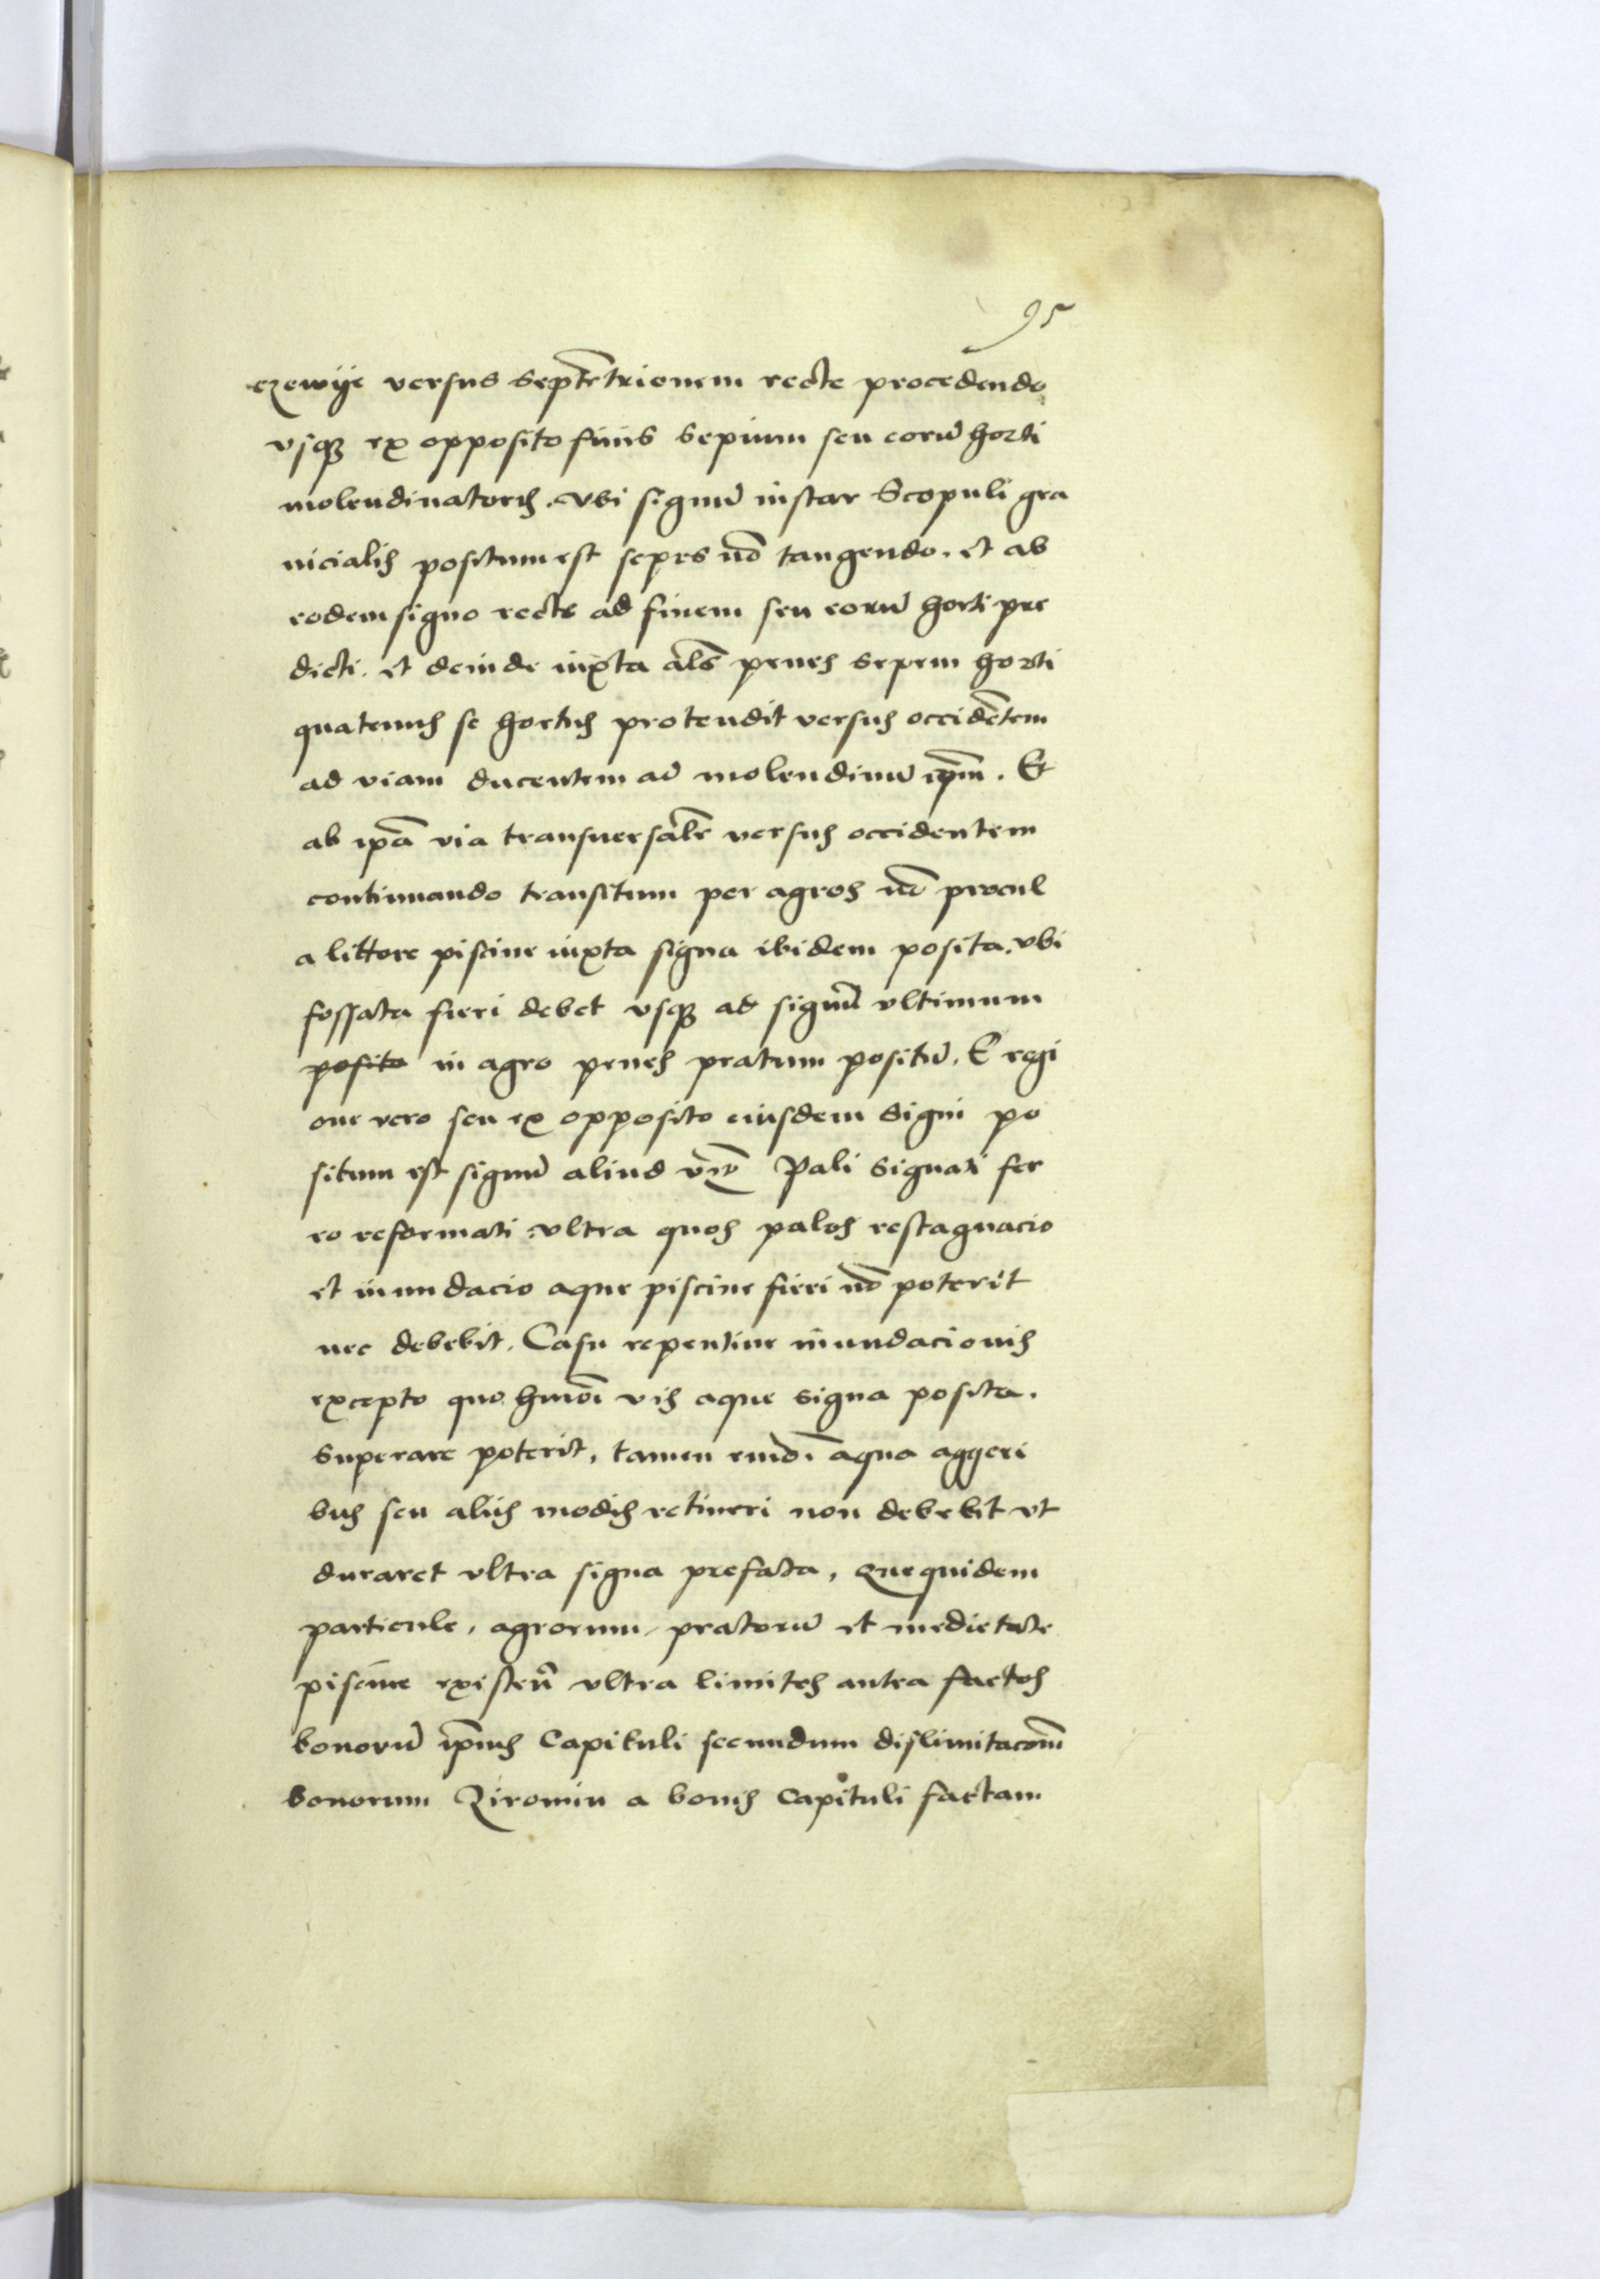 95
czewije versus Septētrionem recte procedendo
vsq3 ex opposito finis sepium seu corū horti
molendinatoris. Vbi signū instar Scopuli gra
nicialis positum est sepes nō tangendo. et ab
eodem signo recte ad finem seu corū horti pre
dicti. et deinde iuxta als penes sepem horti
quatenus se hortus protendit versus occidētem
ad viam ducentem ad molendinū ip̄m. Et
ab ip̄a via transuersalr versus occidentem
continuando transitum per agros nō procul
a littore piscine iuxta signa ibidem posita. vbi
fossata fieri debet vsq3 ad signū vltimum
posito in agro penes pratum positū. E regi
one vero seu ex opposito eiusdem signi po
situm est signū aliud vz Pali signati fer
ro reformati vltra quos palos restagnacio
et inundacio aque piscine fieri nō poterit
nec debebit. Casu repentine inundacionis
excepto quo hmōi vis aque signa posita.
superare poterit, tamen eiusdī aqua aggeri
bus seu aliis modis retineri non debebit vt
duraret vltra signa prefata, que quidem
particule, agrorum, pratorū et medietate
piscine existeñ vltra limites antea factos
bonorū ip̄ius Capituli secundum dislimitacōm̄
bonorum Ziromin a bonis Capituli factam